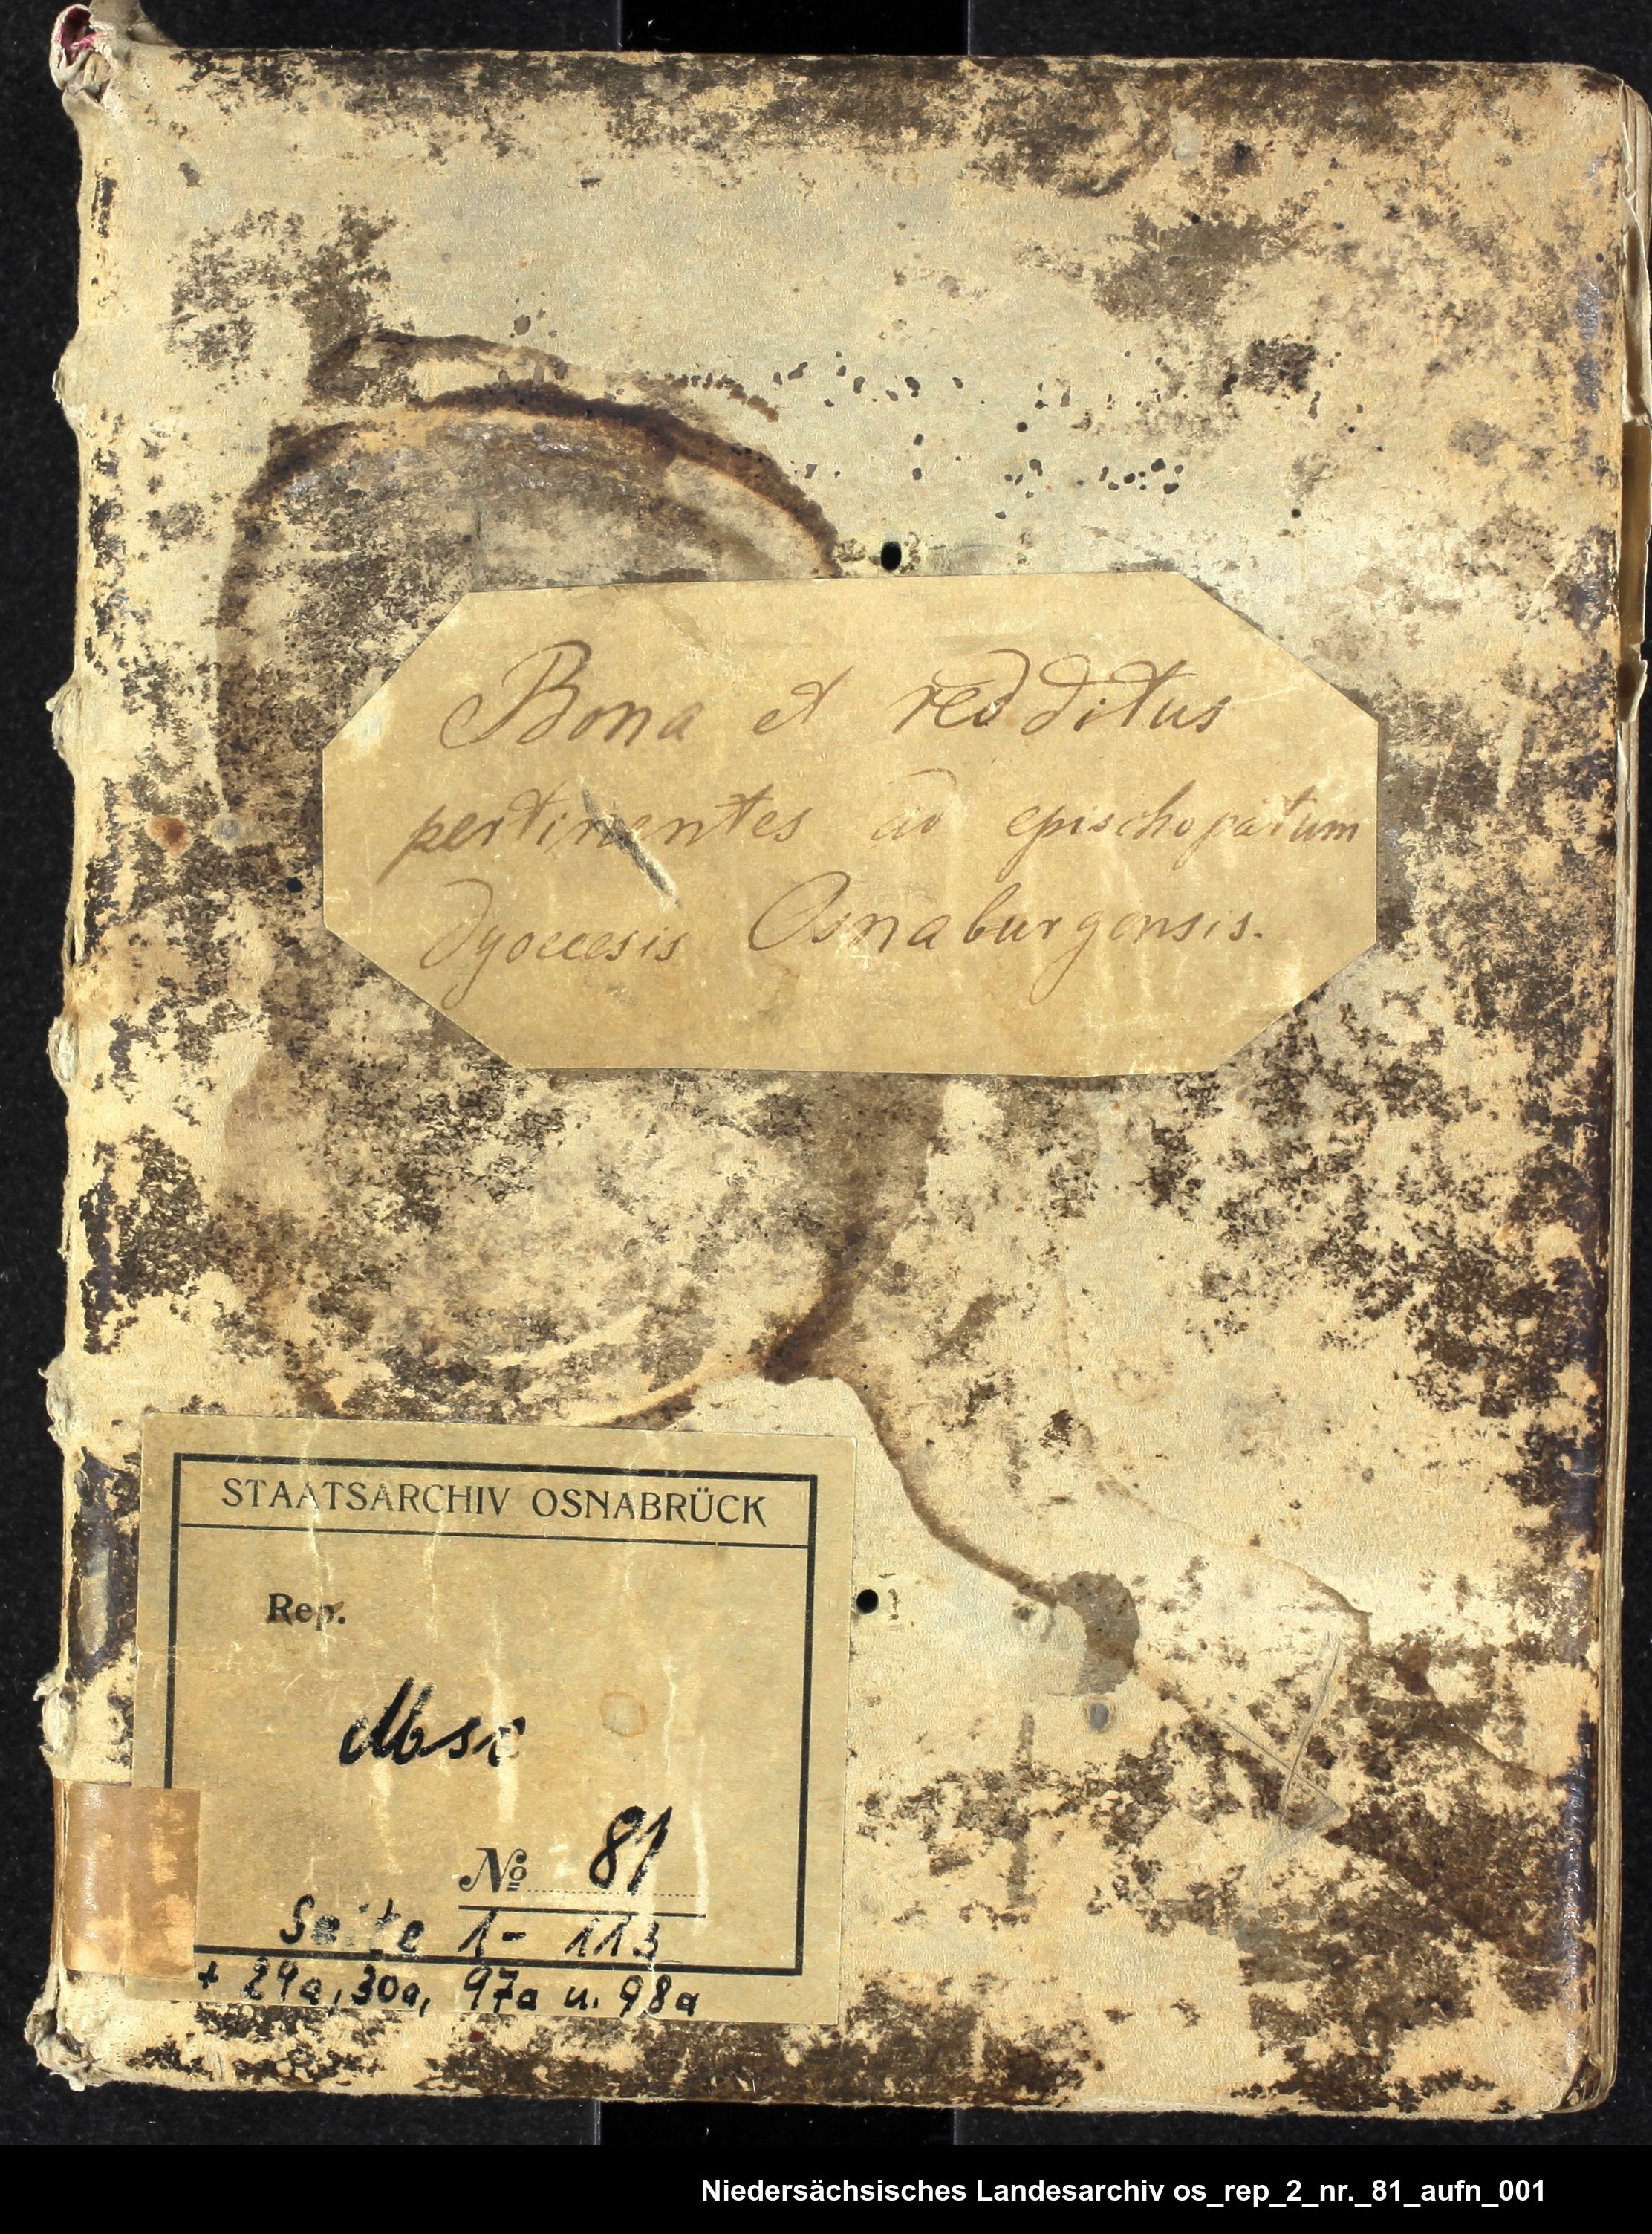 Bona et redditus
pertinentes ad epischopatum
Dyocesis Osnaburgensis.
STAATSARCHIV OSNABRÜCK
Rep.
Msc
No 81
Seite 1 - 113
+ 29a, 30a, 97a u. 98a
Niedersächsisches Landesarchiv os_rep_2_nr._81_aufn_001